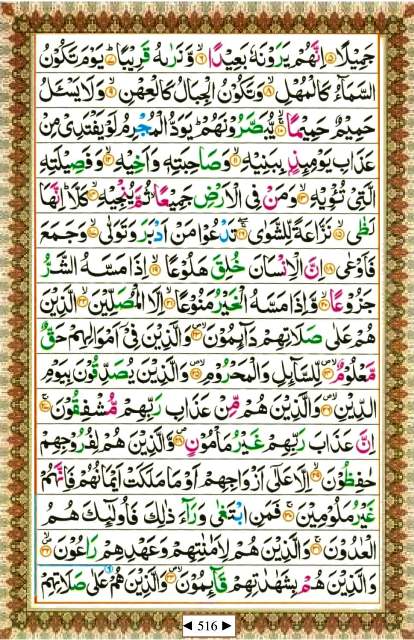 جَمِيْلًا ۝٥ اِنَّهُمْ يَرَوْنَهٗ بَعِيْدًا ۝٦ وَّنَرٰىهُ قَرِيْبًا ۝٧ يَوْمَ تَكُوْنُ
السَّمَآءُ كَالْمُهْلِ ۝٨ وَتَكُوْنُ الْجِبَالُ كَالْعِهْنِ ۝٩ وَلَا يَسْـَٔلُ
حَمِيْمٌ حَمِيْمًا ۝١٠ يُّبَصَّرُوْنَهُمْ يَوَدُّ الْمُجْرِمُ لَوْ يَفْتَدِيْ مِنْ
عَذَابِ يَوْمِىِٕذٍۭ بِبَنِيْهِ ۝١١ وَصَاحِبَتِهٖ وَاَخِيْهِ ۝١٢ وَفَصِيْلَتِهِ
الَّتِيْ تُـْٔوِيْهِ ۝١٣ وَمَنْ فِي الْاَرْضِ جَمِيْعًا ثُمَّ يُنْجِيْهِ ۝١٤ كَلَّا اِنَّهَا
لَظٰى ۝١٥ نَزَّاعَةً لِّلشَّوٰى ۝١٦ تَدْعُوْا مَنْ اَدْبَرَ وَتَوَلّٰى ۝١٧ وَجَمَعَ
فَاَوْعٰى ۝١٨ اِنَّ الْاِنْسَانَ خُلِقَ هَلُوْعًا ۝١٩ اِذَا مَسَّهُ الشَّرُّ
جَزُوْعًا ۝٢٠ وَّاِذَا مَسَّهُ الْخَيْرُ مَنُوْعًا ۝٢١ اِلَّا الْمُصَلِّيْنَ ۝٢٢ الَّذِيْنَ
هُمْ عَلٰى صَلَاتِهِمْ دَآىِٕمُوْنَ ۝٢٣ وَالَّذِيْنَ فِيْٓ اَمْوَالِهِمْ حَقٌّ
مَّعْلُوْمٌ ۝٢٤ لِّلسَّآىِٕلِ وَالْمَحْرُوْمِ ۝٢٥ وَالَّذِيْنَ يُصَدِّقُوْنَ بِيَوْمِ
الدِّيْنِ ۝٢٦ وَالَّذِيْنَ هُمْ مِّنْ عَذَابِ رَبِّهِمْ مُّشْفِقُوْنَ ۝٢٧
اِنَّ عَذَابَ رَبِّهِمْ غَيْرُ مَاْمُوْنٍ ۝٢٨ وَالَّذِيْنَ هُمْ لِفُرُوْجِهِمْ
حٰفِظُوْنَ ۝٢٩ اِلَّا عَلٰٓى اَزْوَاجِهِمْ اَوْ مَا مَلَكَتْ اَيْمَانُهُمْ فَاِنَّهُمْ
غَيْرُ مَلُوْمِيْنَ ۝٣٠ فَمَنِ ابْتَغٰى وَرَآءَ ذٰلِكَ فَاُولٰٓىِٕكَ هُمُ
الْعٰدُوْنَ ۝٣١ وَالَّذِيْنَ هُمْ لِاَمٰنٰتِهِمْ وَعَهْدِهِمْ رَاعُوْنَ ۝٣٢
وَالَّذِيْنَ هُمْ بِشَهٰدٰتِهِمْ قَآىِٕمُوْنَ ۝٣٣ وَالَّذِيْنَ هُمْ عَلٰى صَلَاتِهِمْ
◄ 516 ►